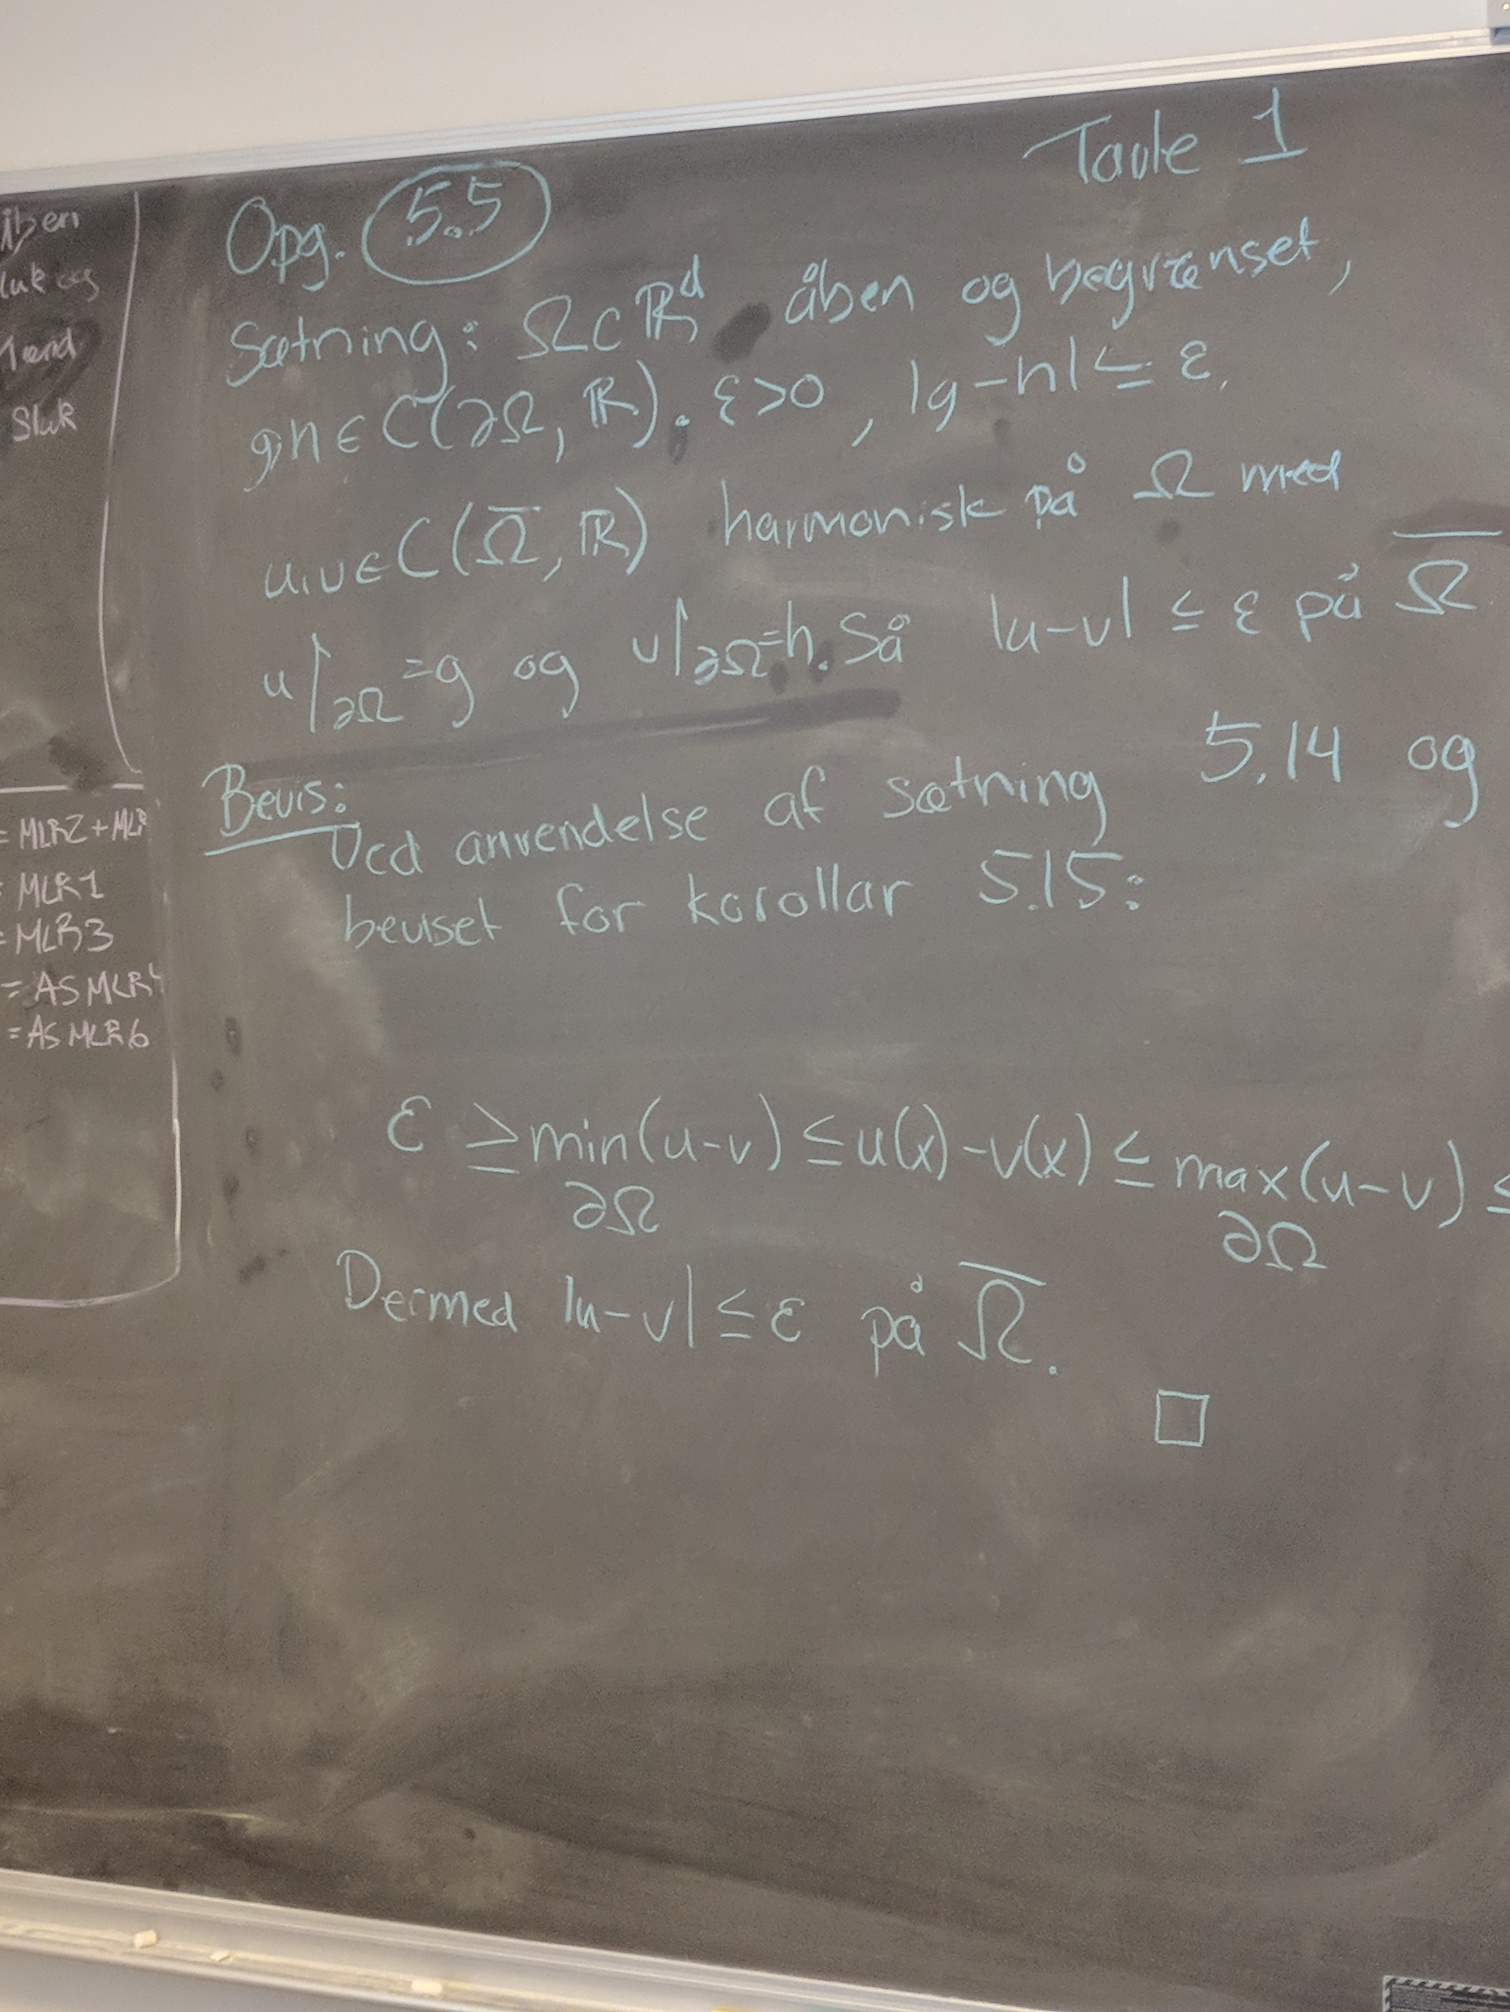 åben
luk og
Mand
Sluk
= MLR2 + MLR
= MLR1
= MLR3
= ASMLR4
= ASMLR6
Tavle 1
Opg. 5.5
Sætning: Ω⊂ℝᵈ åben og begrænset,
g,h∈C(∂Ω, ℝ). ε>0, |g-h|≤ε.
u,v∈C(Ω̅, ℝ) harmonisk på Ω med
u|∂Ω=g og v|∂Ω=h. Så |u-v| ≤ ε på Ω̅
Bevis:
Ved anvendelse af sætning 5.14 og
beviset for korollar 5.15:
ε ≥ min(u-v) ≤ u(x)-v(x) ≤ max(u-v) ≤
∂Ω ∂Ω
Dermed |u-v| ≤ ε på Ω̅.
□